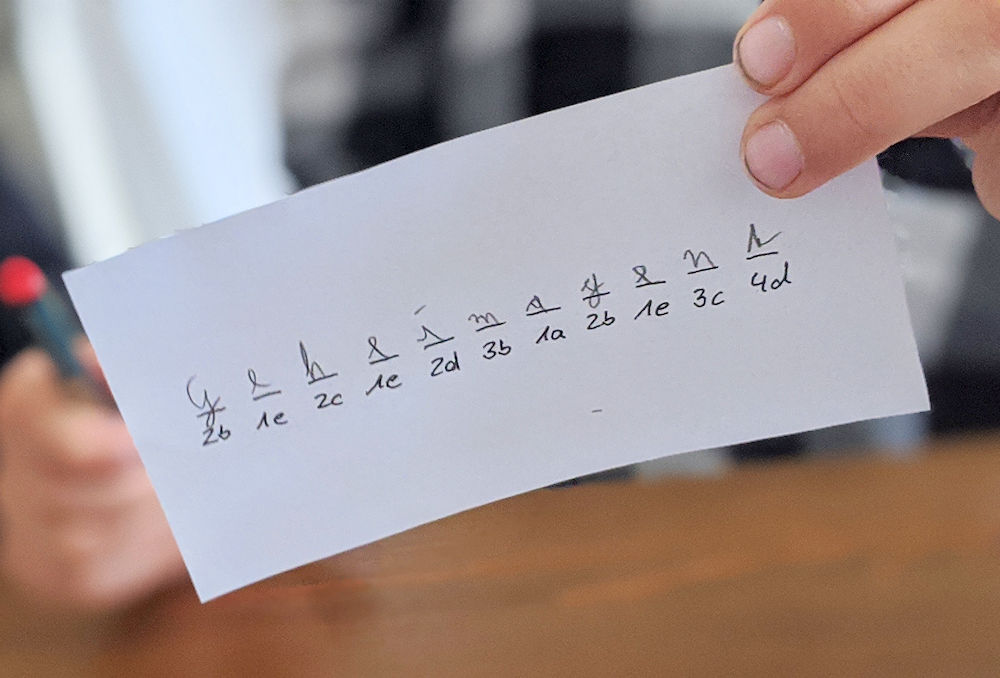 G e h e i m a g e n t
2b 1e 2c 1e 2d 3b 1a 2b 1e 3c 4d